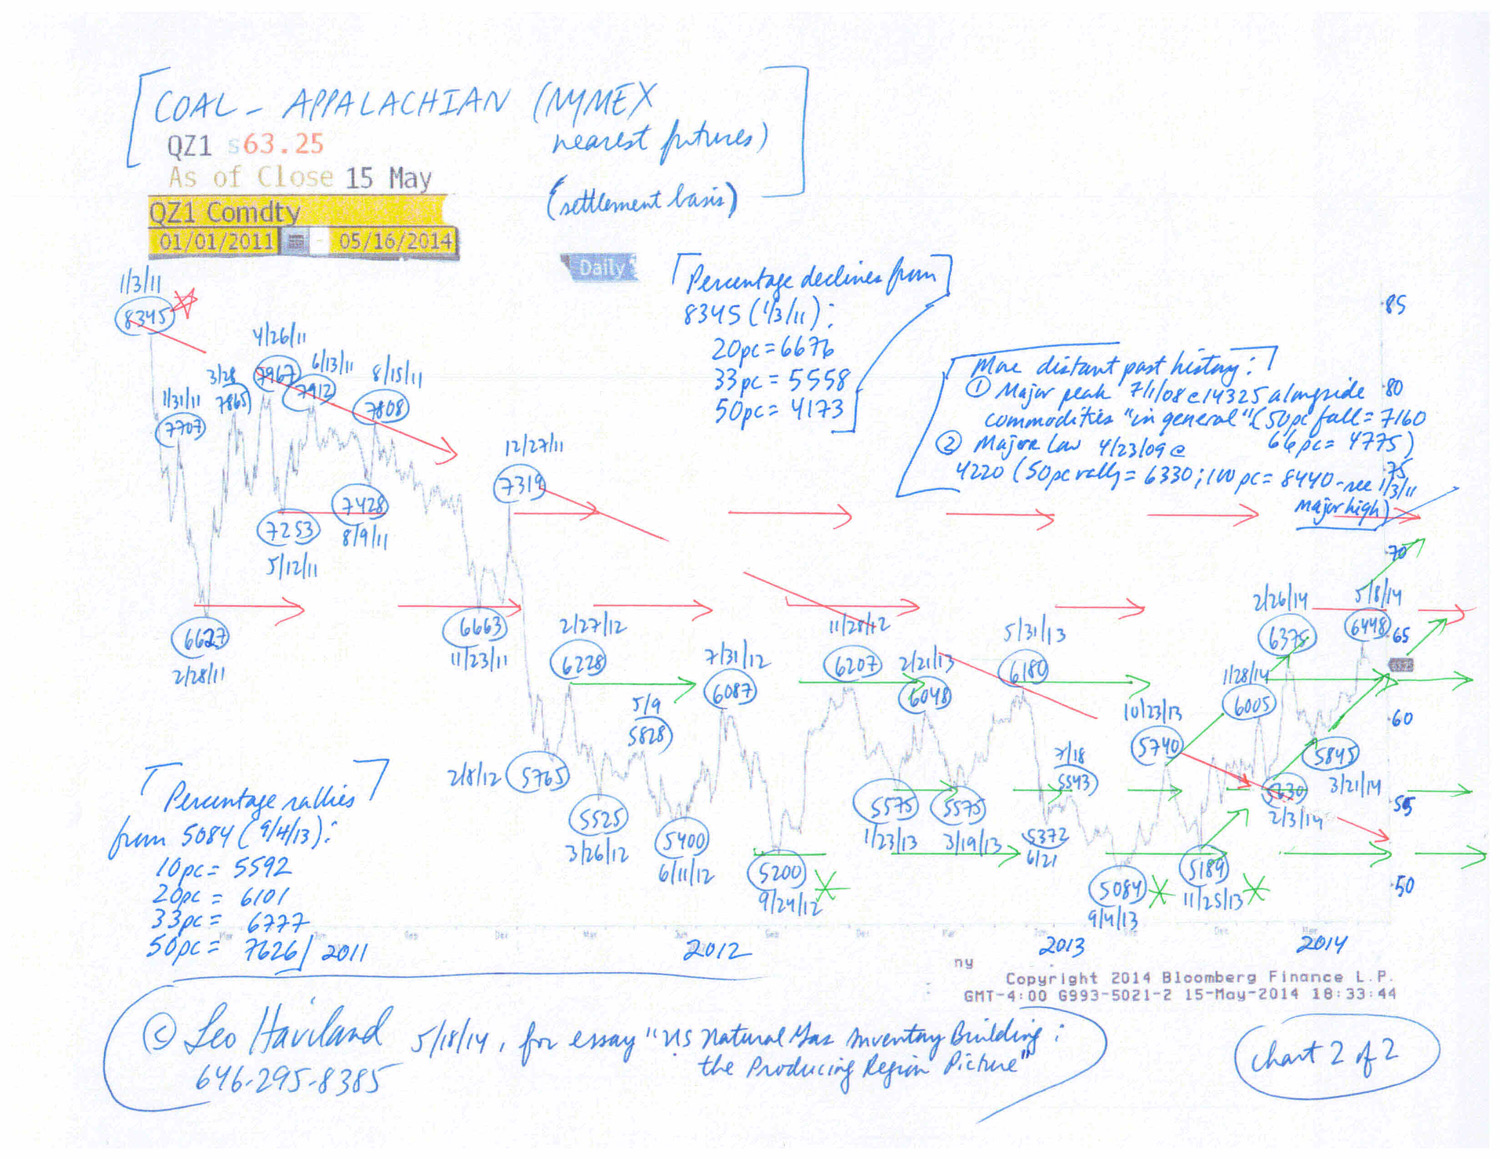 COAL - APPALACHIAN (NYMEX
nearest futures)
(settlement basis)
QZ1 s63.25
As of Close 15 May
QZ1 Comdty
01/01/2011 - 05/16/2014
Daily
Percentage declines from
8345 (1/3/11):
20pc = 6676
33pc = 5558
50pc = 4173
More distant past history:
① Major peak 7/1/08 @ 14325 alongside
commodities "in general" (50pc fall = 7160
66pc = 4775)
② Major low 4/23/09 @
4220 (50pc rally = 6330; 100pc = 8440 - see 1/3/11
Major high)
85
80
75
70
65
60
55
50
1/3/11
8345
1/31/11
7707
6627
2/28/11
3/28
7865
4/26/11
7967
7253
5/12/11
6/13/11
7912
7428
8/9/11
8/15/11
7808
6663
11/23/11
12/27/11
7319
2/8/12
5765
2/27/12
6228
5525
3/26/12
5/9
5828
5400
6/11/12
7/31/12
6087
5200
9/24/12
11/28/12
6207
5575
1/23/13
2/21/13
6048
5575
3/19/13
5/31/13
6180
5372
6/21
7/18
5543
5084
9/4/13
10/23/13
5740
5189
11/25/13
1/28/14
6005
5330
2/3/14
2/26/14
6375
5845
3/21/14
5/8/14
6448
Percentage rallies
from 5084 (9/4/13):
10pc = 5592
20pc = 6101
33pc = 6777
50pc = 7626
2011
2012
2013
2014
ny
Copyright 2014 Bloomberg Finance L.P.
GMT-4:00 G993-5021-2 15-May-2014 18:33:44
© Leo Haviland 5/18/14, for essay "US Natural Gas Inventory Building:
646-295-8385 the Producing Region Picture"
Chart 2 of 2